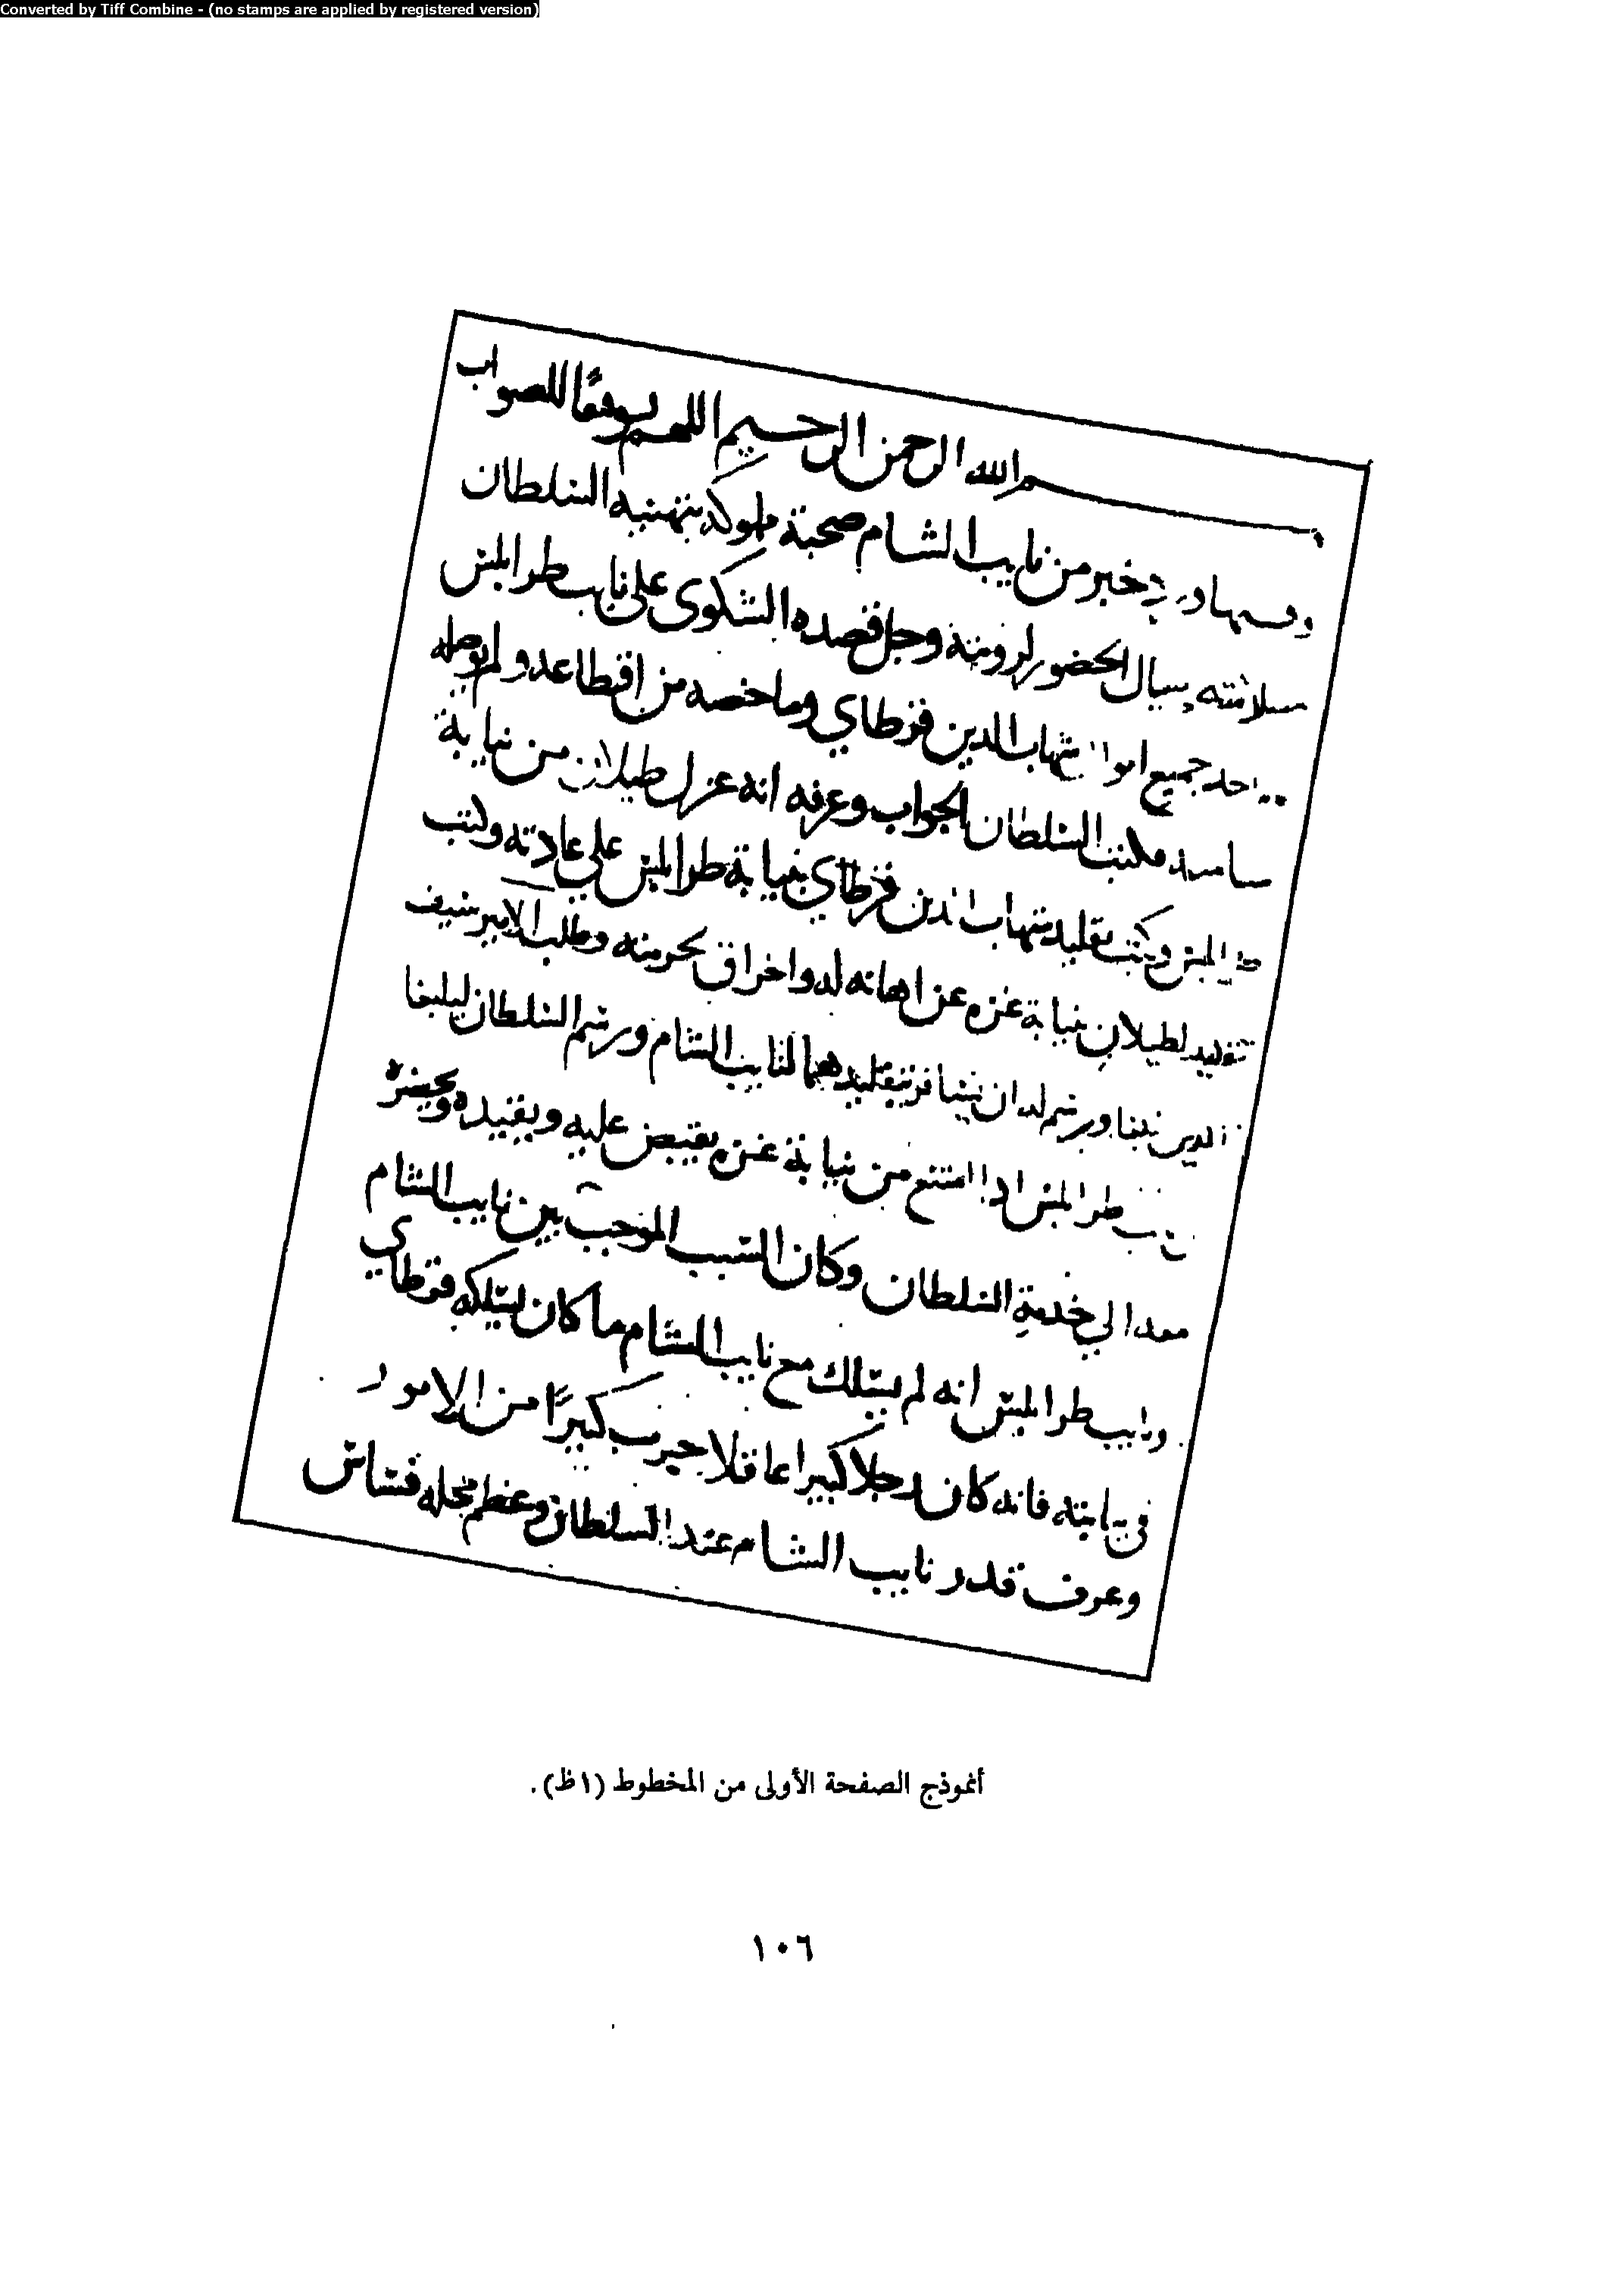 Converted by Tiff Combine - (no stamps are applied by registered version)
بسم الله الرحمن الرحيم اللهم توفيقًا للصواب
وفيها ورد خبر من نايب الشام صحبة مملوكه بتهنيه السلطان
بسلامته ويسال الحضور لرويته وجل قصده الشكوى على نايب طرابلس
جميع اموال شهاب الدين قرطاي وما خصه من اقطاعه ولم يوصله
فكتب السلطان الجواب وعرفه انه عزل طينال من نيابة
طرابلس وكتب تقليد شهاب الدين قرطاي بنيابة طرابلس على عادته وكتب
تقليد لطينال بنيابة غزه عن اهانه له واخراق بحرمته وطلب الامير سيف
الدين ورسم له ان يسافر بتقليدهما لنايب الشام ورسم السلطان
نايب طرابلس اذا امتنع من نيابة غزه يقبض عليه ويقيده ويحضره
معه الي خدمة السلطان وكان السبب الموجب بين نايب الشام
ونايب طرابلس انه لم يسلك مع نايب الشام ما كان يسلكه قرطاي
في نيابته فانه كان رجلا كبيرا عاقلا جرب كثيرًا من الامور
وعرف قدر نايب الشام عند السلطان وعظم محله
أنموذج الصفحة الأولى من المخطوط (١ظ).
١٠٦